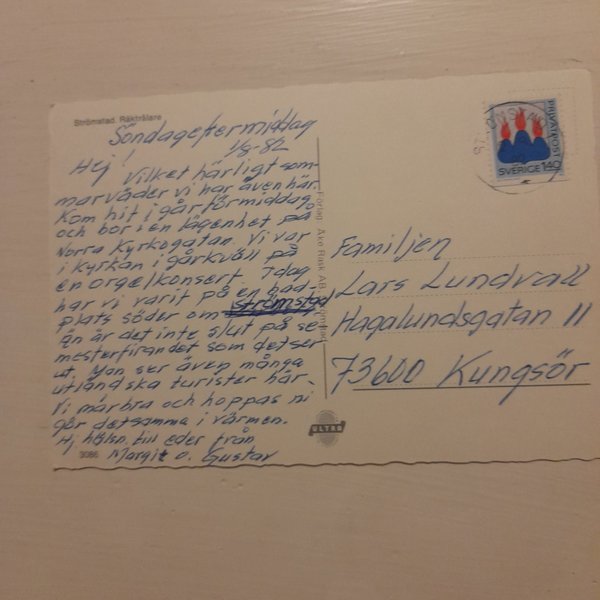 Strömstad. Räktrålare
Söndageftermiddag
1/8-82
Hej! Vilket härligt som-
marväder vi har även här.
Kom hit i går förmiddag
och bor i en lägenhet på
Norra Kyrkogatan. Vi var
i kyrkan i går kväll på
en orgelkonsert. Idag
har vi varit på en bad-
plats söder om Strömstad
Än är det inte slut på se-
mesterfirandet som det ser
ut. Man ser även många
utländska turister här.
Vi mår bra och hoppas ni
gör detsamma i värmen.
Hj hälsn. till eder från
Margit o. Gustav
3086
Förlag: Åke Rask AB,
ULTRA
PRIVATPOST
SVERIGE 140
Familjen
Lars Lundvall
Hagalundsgatan 11
73600 Kungsör